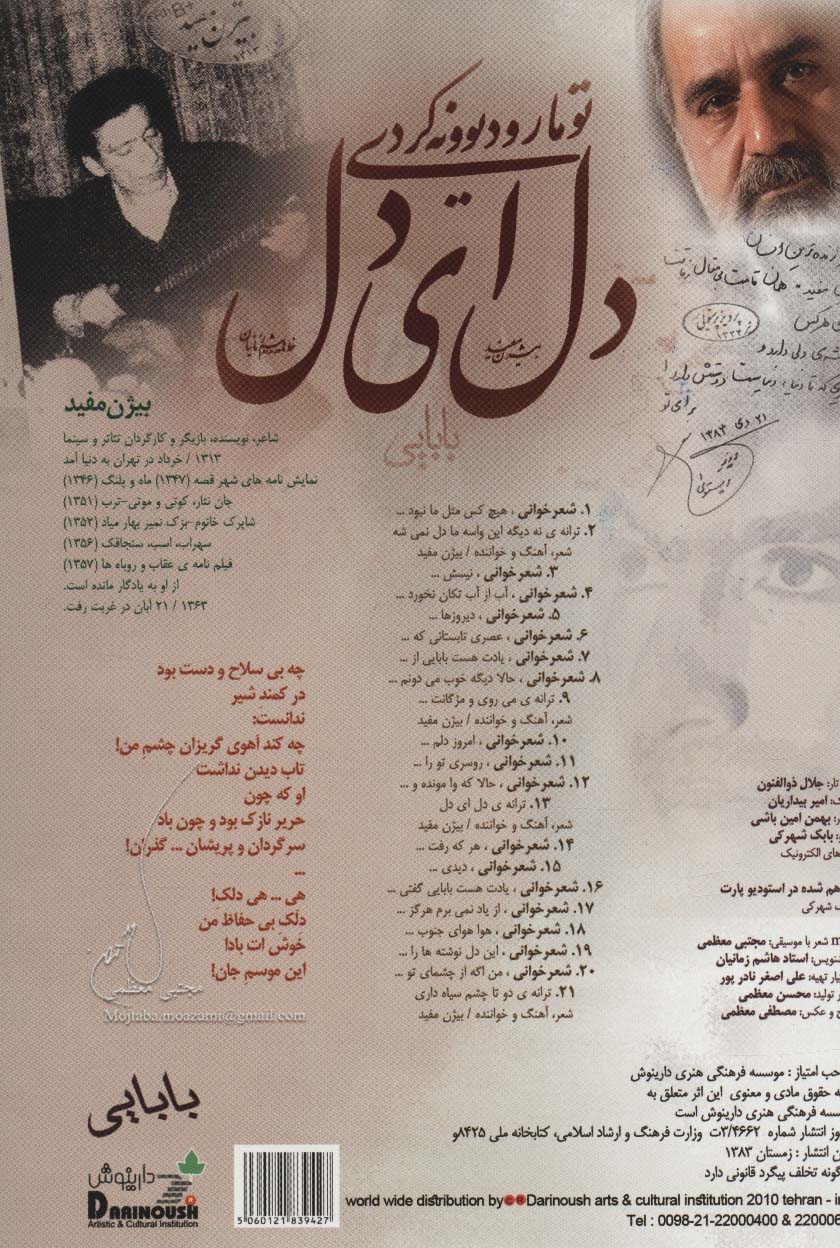 بیژن مفید
تو ما رو دیوونه کردی
دل ای دل
بابایی
۲۱ دی ۱۳۸۳
بیژن مفید
شاعر، نویسنده، بازیگر و کارگردان تئاتر و سینما
۱۳۱۳ / خرداد در تهران به دنیا آمد
نمایش نامه های شهر قصه (۱۳۴۷) ماه و پلنگ (۱۳۴۶)
جان نثار، کوتی و موتی-ترب (۱۳۵۱)
شاپرک خانوم-بزک نمیر بهار میاد (۱۳۵۲)
سهراب، اسب، سنجاقک (۱۳۵۶)
فیلم نامه ی عقاب و روباه ها (۱۳۵۷)
از او به یادگار مانده است.
۱۳۶۳ / ۲۱ آبان در غربت رفت.
چه بی سلاح و دست بود
در کمند شیر
ندانست:
چه کند آهوی گریزان چشمِ من!
تاب دیدن نداشت
او که چون
حریر نازک بود و چون باد
سرگردان و پریشان ... گذران!
...
هی ... هی دلک!
دلَک بی حفاظ من
خَوش اَت بادا
این موسمِ جان!
مجتبی معظمی
Mojtaba.moazami@gmail.com
۱. شعرخوانی ، هیچ کس مثل ما نبود ...
۲. ترانه ی نه دیگه این واسه ما دل نمی شه
شعر، آهنگ و خواننده / بیژن مفید
۳. شعرخوانی ، نیسش ...
۴. شعرخوانی ، آب از آب تکان نخورد ...
۵. شعرخوانی ، دیروزها ...
۶. شعرخوانی ، عصری تابستانی که ...
۷. شعرخوانی ، یادت هست بابایی از ...
۸. شعرخوانی ، حالا دیگه خوب می دونم ...
۹. ترانه ی می روی و مژگانت ...
شعر، آهنگ و خواننده / بیژن مفید
۱۰. شعرخوانی ، امروز دلم ...
۱۱. شعرخوانی ، روسری تو را ...
۱۲. شعرخوانی ، حالا که وا مونده و ...
۱۳. ترانه ی دل ای دل
شعر، آهنگ و خواننده / بیژن مفید
۱۴. شعرخوانی ، هر که رفت ...
۱۵. شعرخوانی ، دیدی ...
۱۶. شعرخوانی ، یادت هست بابایی گفتی ...
۱۷. شعرخوانی ، از یاد نمی برم هرگز ...
۱۸. شعرخوانی ، هوا هوای جنوب ...
۱۹. شعرخوانی ، این دل نوشته ها را ...
۲۰. شعرخوانی ، من اگه از چشمای تو ...
۲۱. ترانه ی دو تا چشم سیاه داری
شعر، آهنگ و خواننده / بیژن مفید
تار: جلال ذوالفنون
امیر بیداریان
بهمن امین باشی
بابک شهرکی
های الکترونیک
شده در استودیو پارت
شهرکی
شعر با موسیقی: مجتبی معظمی
استاد هاشم زمانیان
تهیه: علی اصغر نادر پور
تولید: محسن معظمی
و عکس: مصطفی معظمی
امتیاز : موسسه فرهنگی هنری دارینوش
حقوق مادی و معنوی این اثر متعلق به
فرهنگی هنری دارینوش است
انتشار شماره ۳/۴۶۶۲ت وزارت فرهنگ و ارشاد اسلامی، کتابخانه ملی ۸۴۲۵و
انتشار : زمستان ۱۳۸۳
گونه تخلف پیگرد قانونی دارد
بابایی
دارینوش
DARINOUSH
Artistic & Cultural Institution
5 060121 839427
world wide distribution by Darinoush arts & cultural institution 2010 tehran -
Tel : 0098-21-22000400 &